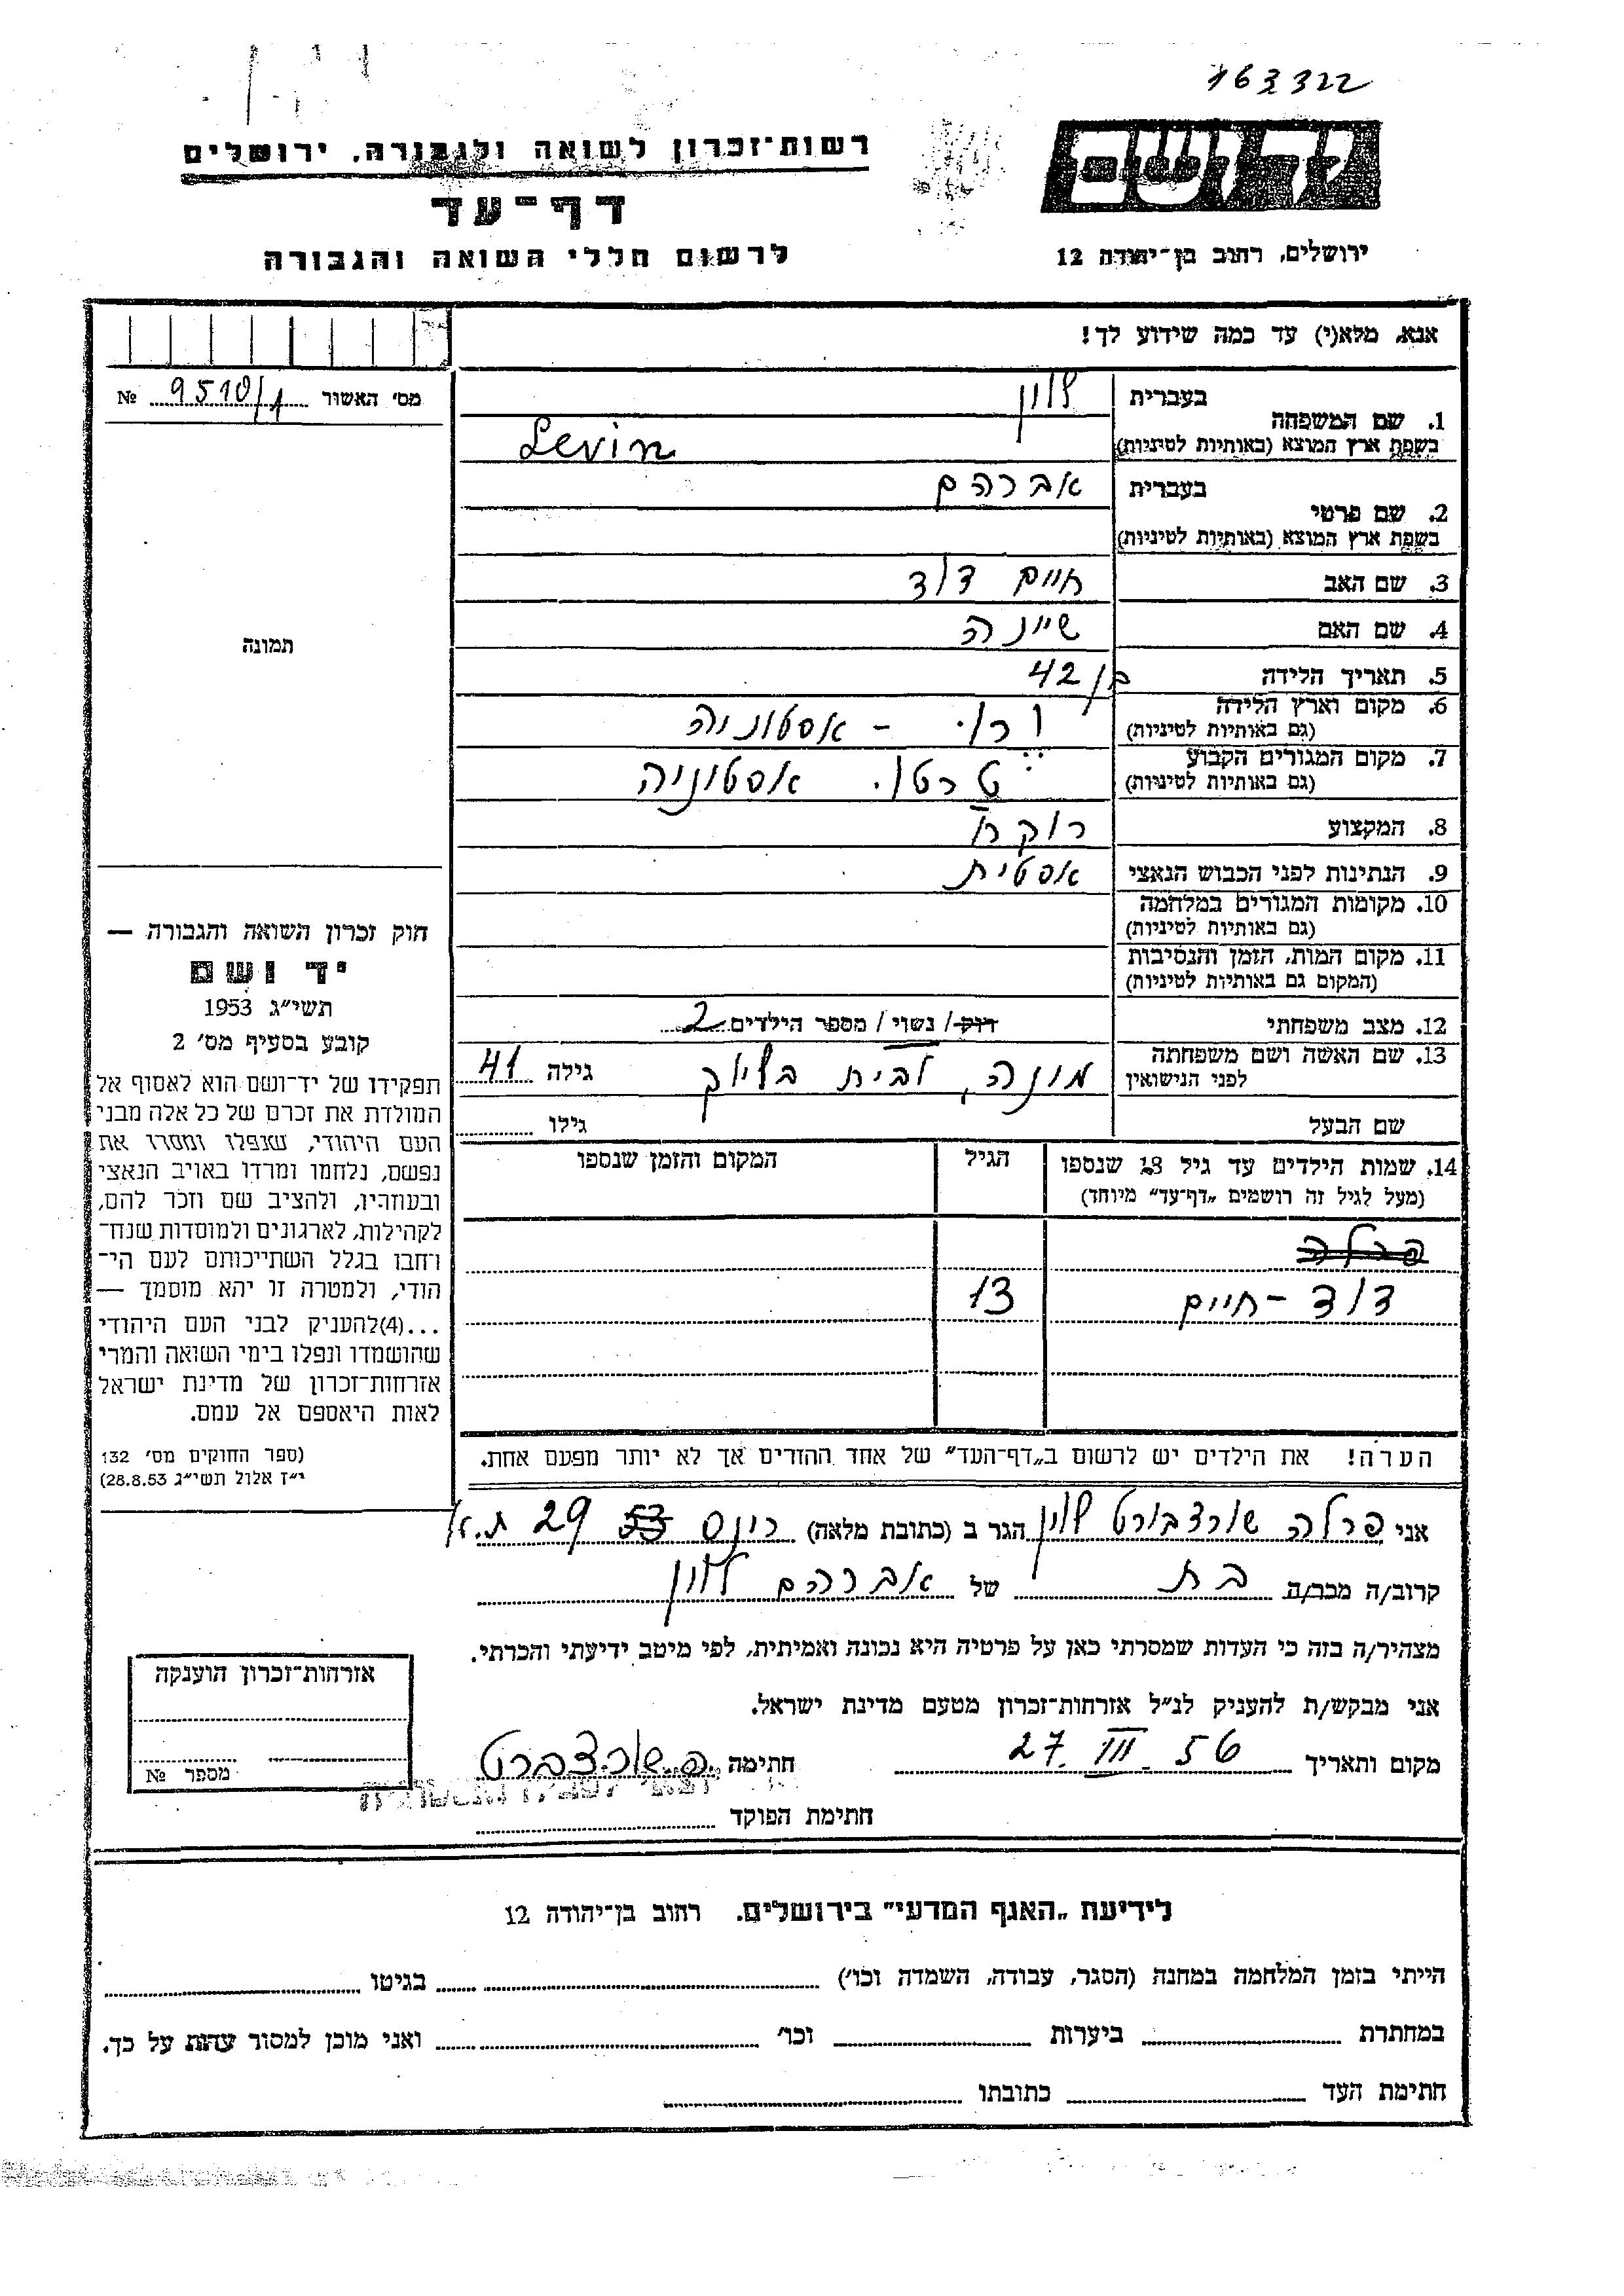 163322
רשות־זכרון לשואה ולגבורה, ירושלים
דף־עד
לרשום חללי השואה והגבורה
ידושם
ירושלים, רחוב בן־יהודה 12
אנא, מלא(י) עד כמה שידוע לך!
מס' האשור 9510/1 №
1. שם המשפחה בעברית לוין
בשפת ארץ המוצא (באותיות לטיניות) Levin
2. שם פרטי בעברית אברהם
בשפת ארץ המוצא (באותיות לטיניות)
3. שם האב חיים דוד
4. שם האם שיינה
5. תאריך הלידה בן 42
6. מקום וארץ הלידה ורו. - אסטוניה
(גם באותיות לטיניות)
7. מקום המגורים הקבוע טרטו. אסטוניה
(גם באותיות לטיניות)
8. המקצוע רוקח
9. הנתינות לפני הכבוש הנאצי אסטית
10. מקומות המגורים במלחמה
(גם באותיות לטיניות)
11. מקום המות, הזמן והנסיבות
(המקום גם באותיות לטיניות)
12. מצב משפחתי רוק / נשוי / מספר הילדים 2
13. שם האשה ושם משפחתה מונה, לבית גילה 41
לפני הנישואין
שם הבעל גילו
14. שמות הילדים עד גיל 18 שנספו הגיל המקום והזמן שנספו
(מעל לגיל זה רושמים „דף־עד" מיוחד)
פרלה
דוד - חיים 13
הערה! את הילדים יש לרשום ב„דף־העד" של אחד ההורים אך לא יותר מפעם אחת.
תמונה
חוק זכרון השואה והגבורה —
יד ושם
תשי"ג 1953
קובע בסעיף מס' 2
תפקידו של יד־ושם הוא לאסוף אל
המולדת את זכרם של כל אלה מבני
העם היהודי, שנפלו ומסרו את
נפשם, נלחמו ומרדו באויב הנאצי
ובעוזריו, ולהציב שם וזכר להם,
לקהילות, לארגונים ולמוסדות שנח־
רחבו בגלל השתייכותם לעם הי־
הודי, ולמטרה זו יהא מוסמך —
...(4)להעניק לבני העם היהודי
שהושמדו ונפלו בימי השואה והמרי
אזרחות־זכרון של מדינת ישראל
לאות היאספם אל עמם.
(ספר החוקים מס' 132
י"ז אלול תשי"ג 28.8.53)
אני פרלה שורצבורט לוין הגר ב (כתובת מלאה) רינס 53 29 ת.א
קרוב/ה מכר/ה בת של אברהם לוין
מצהיר/ה בזה כי העדות שמסרתי כאן על פרטיה היא נכונה ואמיתית, לפי מיטב ידיעתי והכרתי.
אני מבקש/ת להעניק לנ"ל אזרחות־זכרון מטעם מדינת ישראל.
מקום ותאריך 27. III. 56 חתימה פ. שורצברט
חתימת הפוקד
אזרחות־זכרון הוענקה
מספר №
לידיעת „האגף המדעי" בירושלים. רחוב בן־יהודה 12
הייתי בזמן המלחמה במחנה (הסגר, עבודה, השמדה וכו') בגיטו
במחתרת ביערות וכו' ואני מוכן למסור עדות על כך.
חתימת העד כתובתו